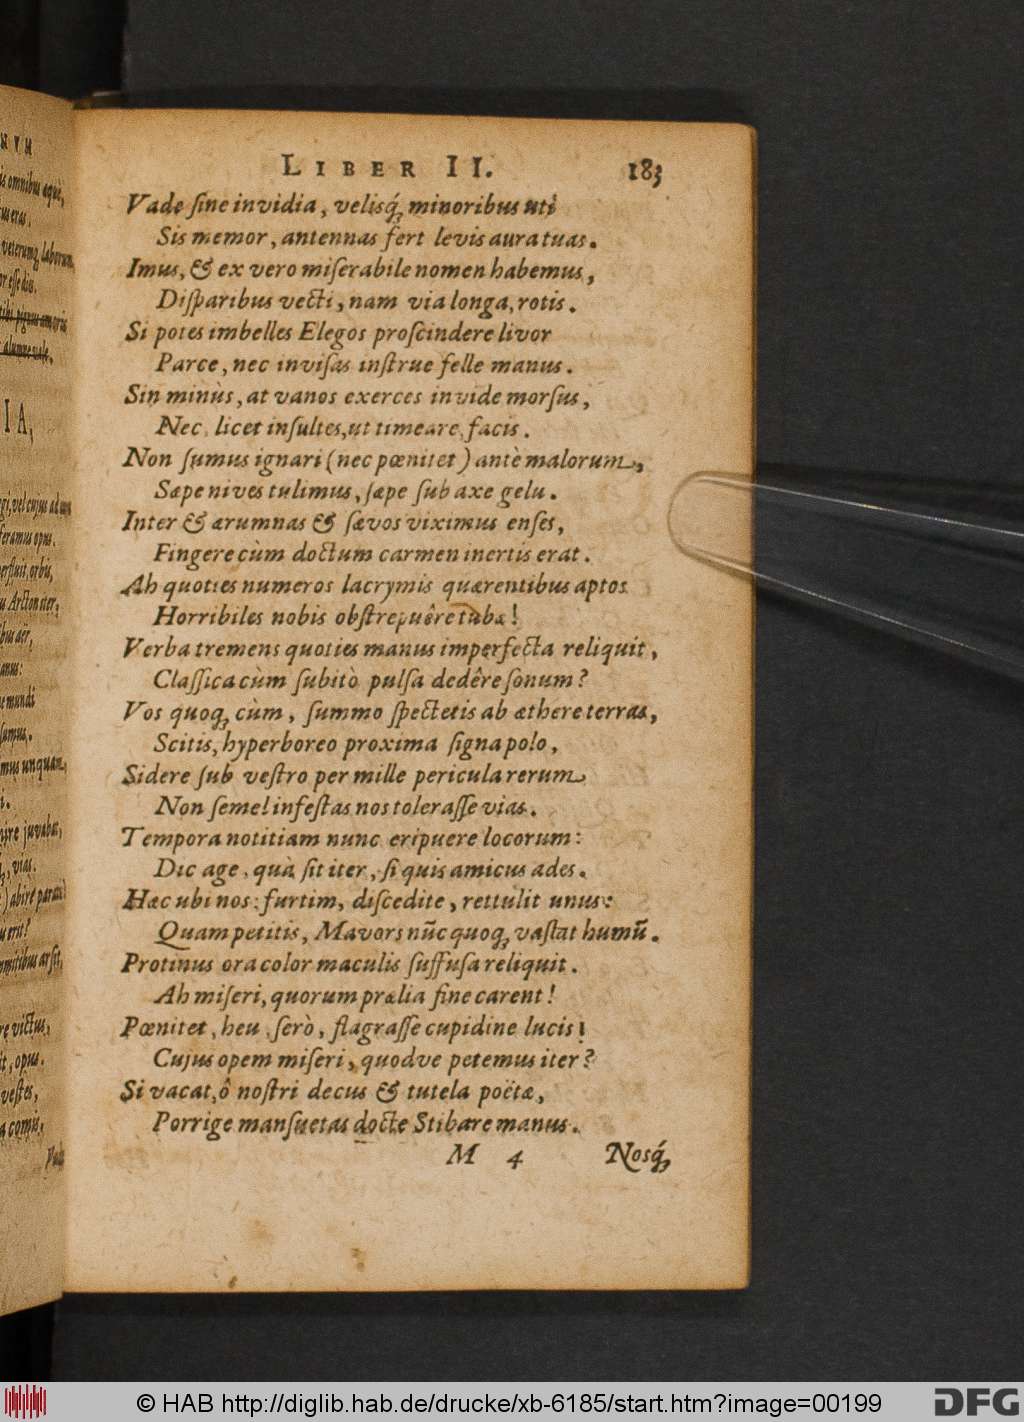 LIBER II. 183
Vade ſine invidia, velisq́; minoribus uti
Sis memor, antennas fert levis aura tuas.
Imus, & ex vero miſerabile nomen habemus,
Diſparibus vecti, nam via longa, rotis.
Si potes imbelles Elegos proſcindere livor
Parce, nec inviſas inſtrue felle manus.
Sin minùs, at vanos exerces invide morſus,
Nec, licet inſultes, ut timeare, facis.
Non ſumus ignari (nec pœnitet) antè malorum,
Sæpe nives tulimus, ſæpe ſub axe gelu.
Inter & ærumnas & ſævos viximus enſes,
Fingere cùm doctum carmen inertis erat.
Ah quoties numeros lacrymis quærentibus aptos
Horribiles nobis obſtrepuêre tubæ!
Verba tremens quoties manus imperfecta reliquit,
Claſſica cùm ſubitò pulſa dedêre ſonum?
Vos quoq; cùm, ſummo ſpectetis ab æthere terras,
Scitis, hyperboreo proxima ſigna polo,
Sidere ſub veſtro per mille pericula rerum
Non ſemel infeſtas nos toleraſſe vias.
Tempora notitiam nunc eripuere locorum:
Dic age, quà ſit iter, ſi quis amicus ades.
Hæc ubi nos: furtim, diſcedite, rettulit unus:
Quam petitis, Mavors nūc quoq; vaſtat humū.
Protinus ora color maculis ſuffuſa reliquit.
Ah miſeri, quorum prælia fine carent!
Pœnitet, heu ſerò, flagraſſe cupidine lucis!
Cujus opem miſeri, quodve petemus iter?
Si vacat, ô noſtri decus & tutela poëtæ,
Porrige manſuetas docte Stibare manus.
M 4 Nosq́;
© HAB http://diglib.hab.de/drucke/xb-6185/start.htm?image=00199
DFG